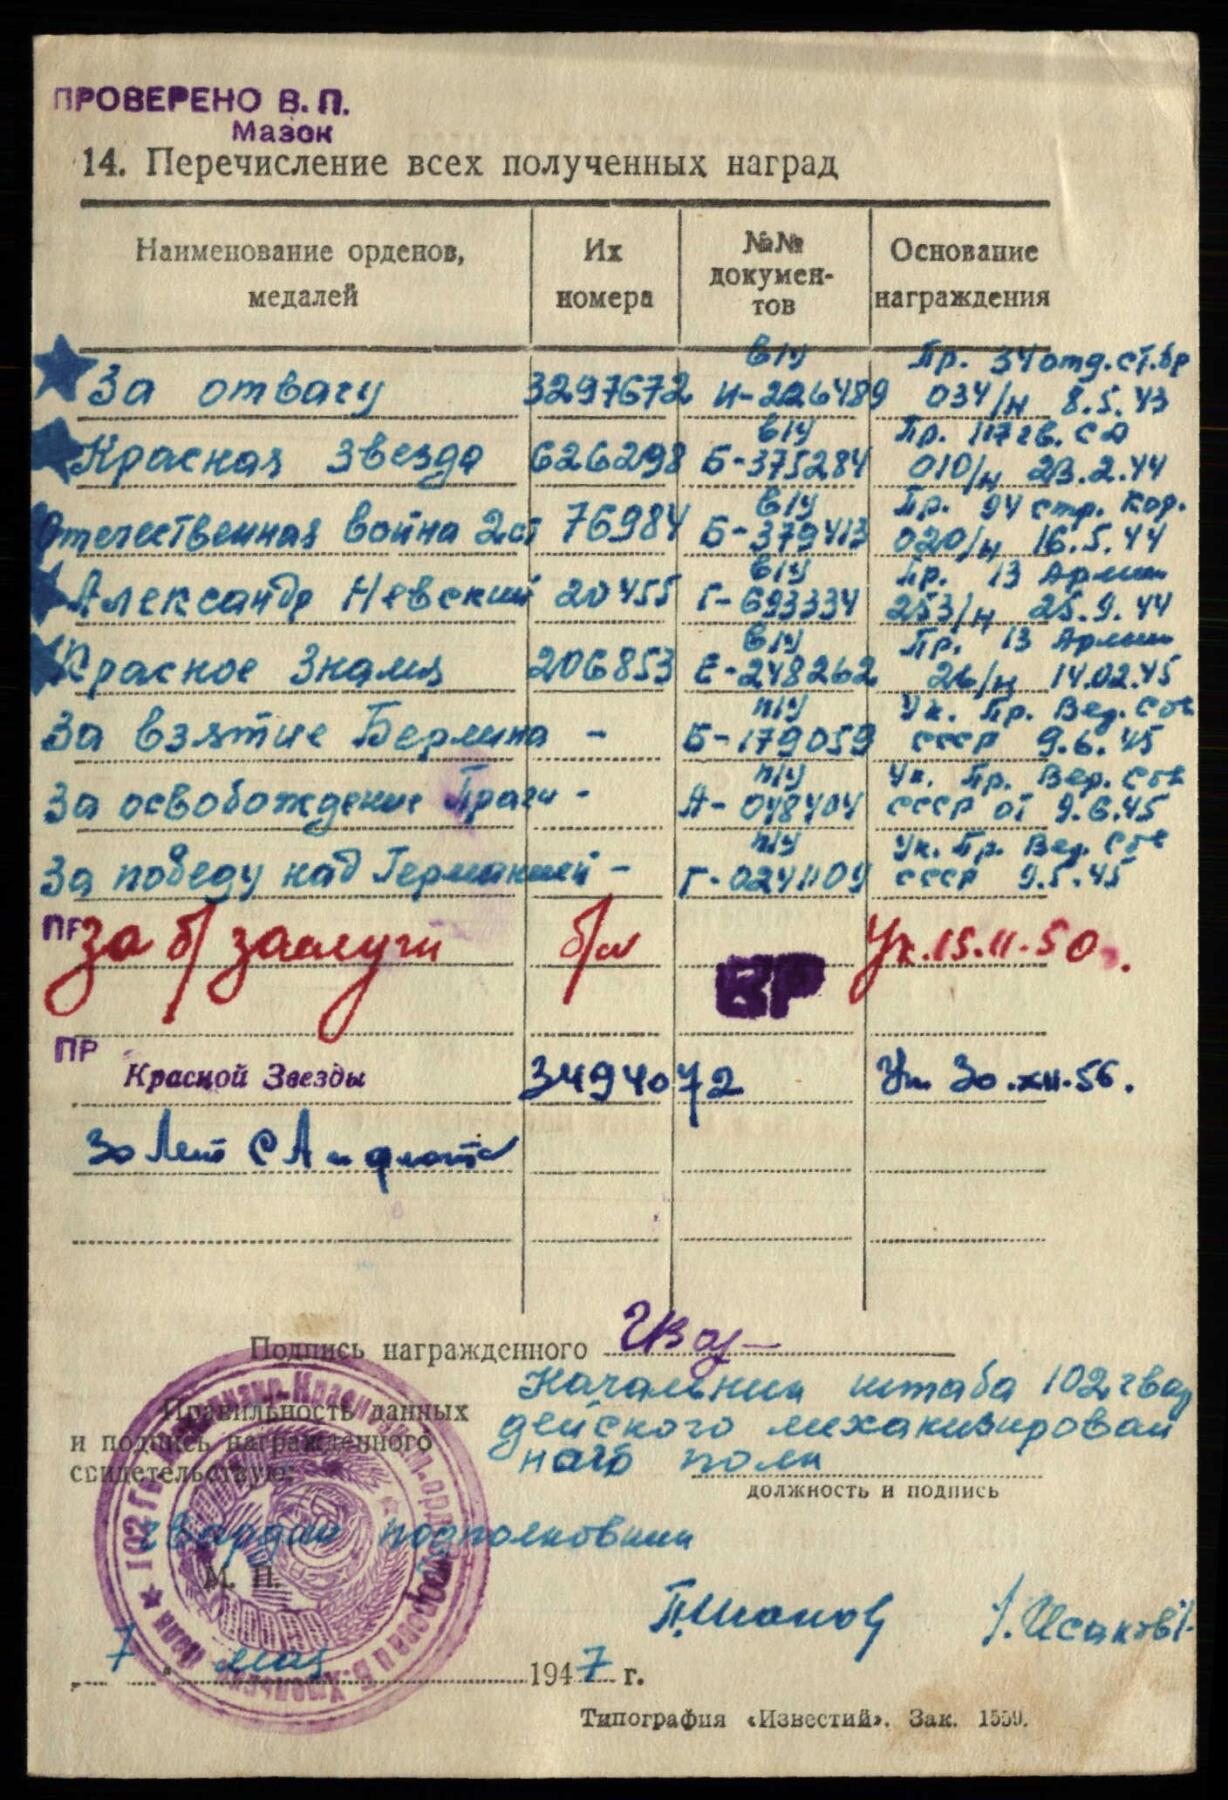 ПРОВЕРЕНО В. П.
Мазок
14. Перечисление всех полученных наград
Наименование орденов, медалей
Их номера
№№ документов
Основание награждения
в/у Пр. 34 отд. ст. бр
За отвагу 3297672 И-226489 034/н 8.5.43
в/у Пр. 117 гв. СД
Красная Звезда 626298 Б-375284 010/н 23.2.44
в/у Пр. 94 стр. кор.
Отечественная война 2 ст 76984 Б-379413 020/н 16.5.44
в/у Пр. 13 Армии
Александр Невский 20455 Г-693334 253/н 25.9.44
в/у Пр. 13 Армии
Красное Знамя 206853 Е-248262 26/н 14.02.45
п/у Ук. Пр. Вер. Сов
За взятие Берлина - Б-179059 СССР 9.6.45
п/у Ук. Пр. Вер. Сов
За освобождение Праги - А-048404 СССР от 9.6.45
п/у Ук. Пр. Вер. Сов
За победу над Германией - Г-0241109 СССР 9.5.45
ПР За б/заслуги б/н Ук. 15.11.50.
ВР
ПР
Красной Звезды 3494072 Ук. 30.XII.56.
30 лет СА и флота
Подпись награжденного
Начальник штаба 102 гвар
дейского механизирован
ного полка
Правильность данных
и подпись награжденного
свидетельствую:
должность и подпись
гвардии подполковник
М. П.
7 мая 1947 г.
Типография «Известий». Зак. 1559.